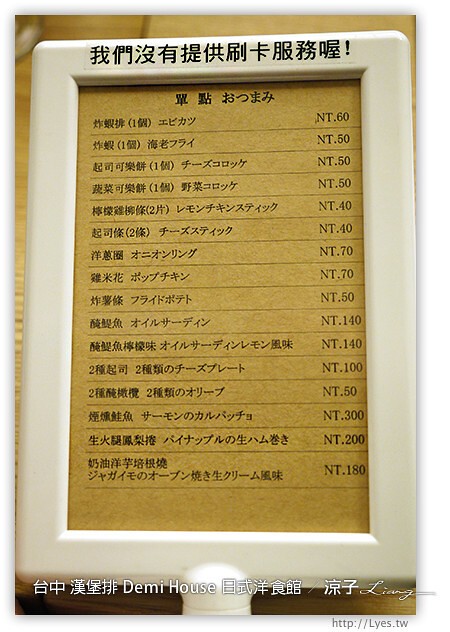 我們沒有提供刷卡服務喔!
單 點 おつまみ
炸蝦排(1個) エビカツ NT.60
炸蝦(1個) 海老フライ NT.50
起司可樂餅(1個) チーズコロッケ NT.50
蔬菜可樂餅(1個) 野菜コロッケ NT.50
檸檬雞柳條(2片) レモンチキンスティック NT.40
起司條(2條) チーズスティック NT.40
洋蔥圈 オニオンリング NT.70
雞米花 ポップチキン NT.70
炸薯條 フライドポテト NT.50
醃鯷魚 オイルサーディン NT.140
醃鯷魚檸檬味 オイルサーディンレモン風味 NT.140
2種起司 2種類のチーズプレート NT.100
2種醃橄欖 2種類のオリーブ NT.50
煙燻鮭魚 サーモンのカルパッチョ NT.300
生火腿鳳梨捲 パイナップルの生ハム巻き NT.200
奶油洋芋培根燒
ジャガイモのオーブン焼き生クリーム風味 NT.180
台中 漢堡排 Demi House 日式洋食館 / 涼子 Liang
http://Lyes.tw